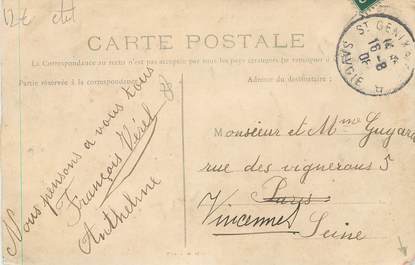 12€
CARTE POSTALE
La Correspondance au recto n'est pas acceptée par tous les pays étrangers (se renseigner
Partie réservée à la correspondance
Adresse du destinataire
Nous pensons a vous tous
François
Anthelme
Monsieur et Mme Guyard
rue des vignerons 5
Paris
Vincennes
Seine
ST GENIX
16-8
SAVOIE